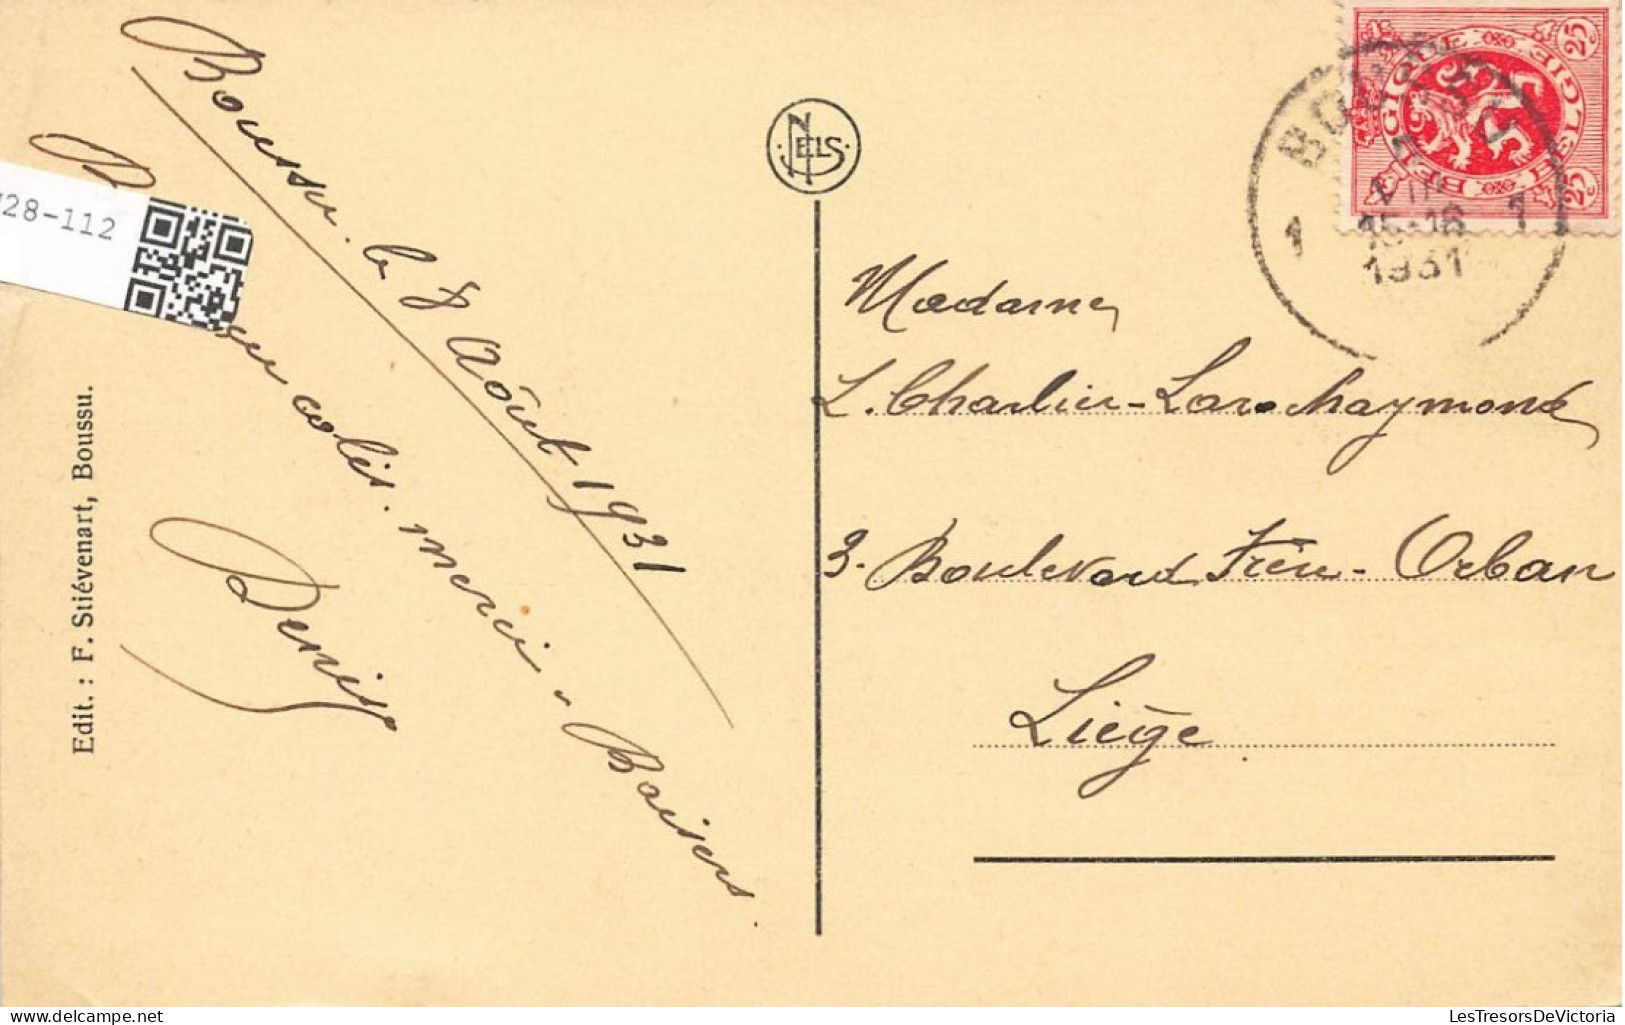 Boussu. le 8 Août 1931
colis. merci. Baisers.
Denise
Edit. : F. Stiévenart, Boussu.
28-112
NELS
BELGIQUE
BELGIE
25c
25c
BOUSSU
1 1
VIII
15-16
1931
Madame
L. Charlier-Larochaymond
3. Boulevard Frère-Orban
Liège.
LesTresorsDeVictoria
delcampe.net